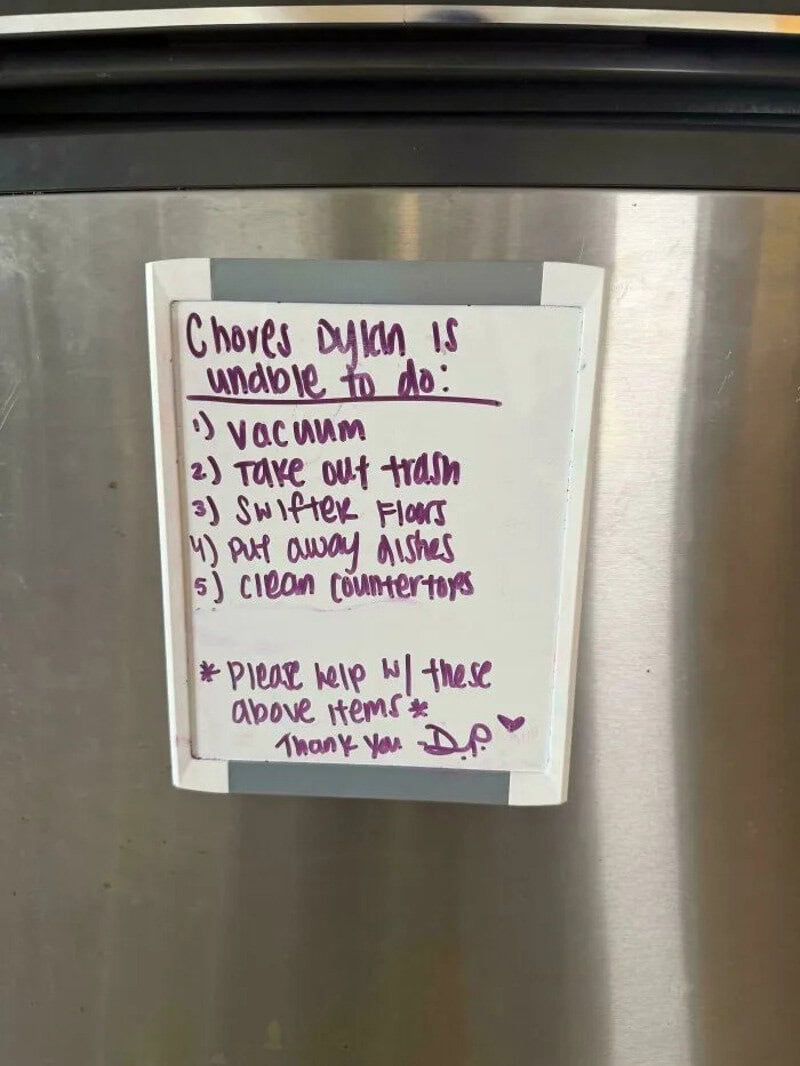 Chores Dylan is
unable to do:
1) Vacuum
2) Take out trash
3) Swifter Floors
4) Put away dishes
5) Clean countertops
* Please help w/ these
above items *
Thank you -D.P.